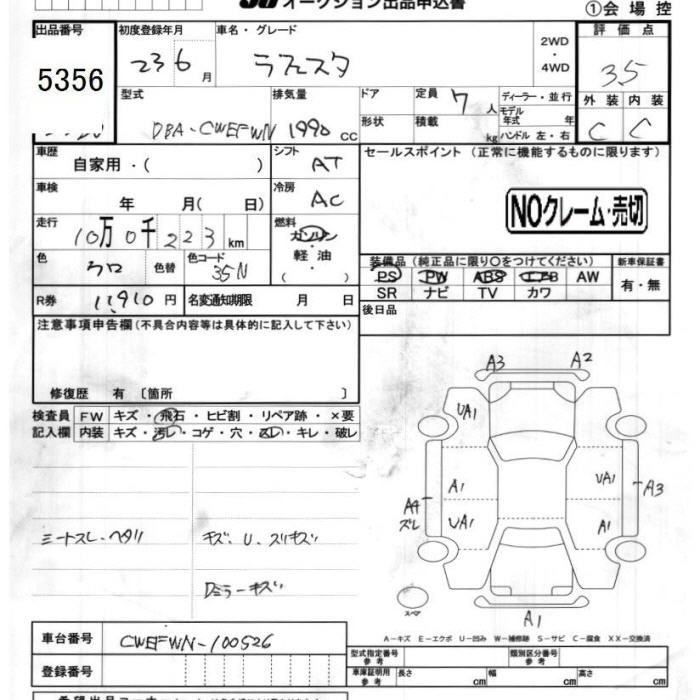 オークション出品申込書
①会場控
出品番号 初度登録年月 車名・グレード 2WD・4WD 評価点
5356 23 6 月 ラフェスタ 3.5
型式 排気量 ドア 定員 7人 ディーラー・並行 外装 内装
DBA-CWEFWN 1990 cc 形状 積載 kg モデル年式 年 ハンドル 左・右 C C
車歴 自家用・( ) シフト AT セールスポイント (正常に機能するものに限ります)
車検 年 月( 日) 冷房 AC
NOクレーム・売切
走行 10万0千223km 燃料 ガソリン
軽油
( )
色 クロ 色替 色コード 35N
装備品(純正品に限り〇をつけてください) 新車保証書
PS PW ABS エアB AW 有・無
SR ナビ TV カワ
R券 11,910円 名変通知期限 月 日 後日品
注意事項申告欄(不具合内容等は具体的に記入して下さい)
修復歴 有〔箇所 〕
検査員 FW キズ・飛石・ヒビ割・リペア跡・×要
記入欄 内装 キズ・汚レ・コゲ・穴・スレ・キレ・破レ
A3 A2
UA1
A1 UA1 A3
A4 ズレ UA1 A1
スペア A1
シートスレ・ヘタリ キズ、U、スリキズ
Dミラーキズ
A-キズ E-エクボ U-凹み W-補修跡 S-サビ C-腐食 XX-交換済
車台番号 CWEFWN-100526
型式指定番号 参考 類別区分番号 参考
登録番号 車庫証明用 参考 長さ cm 幅 cm 高さ cm
希望出品コーナー